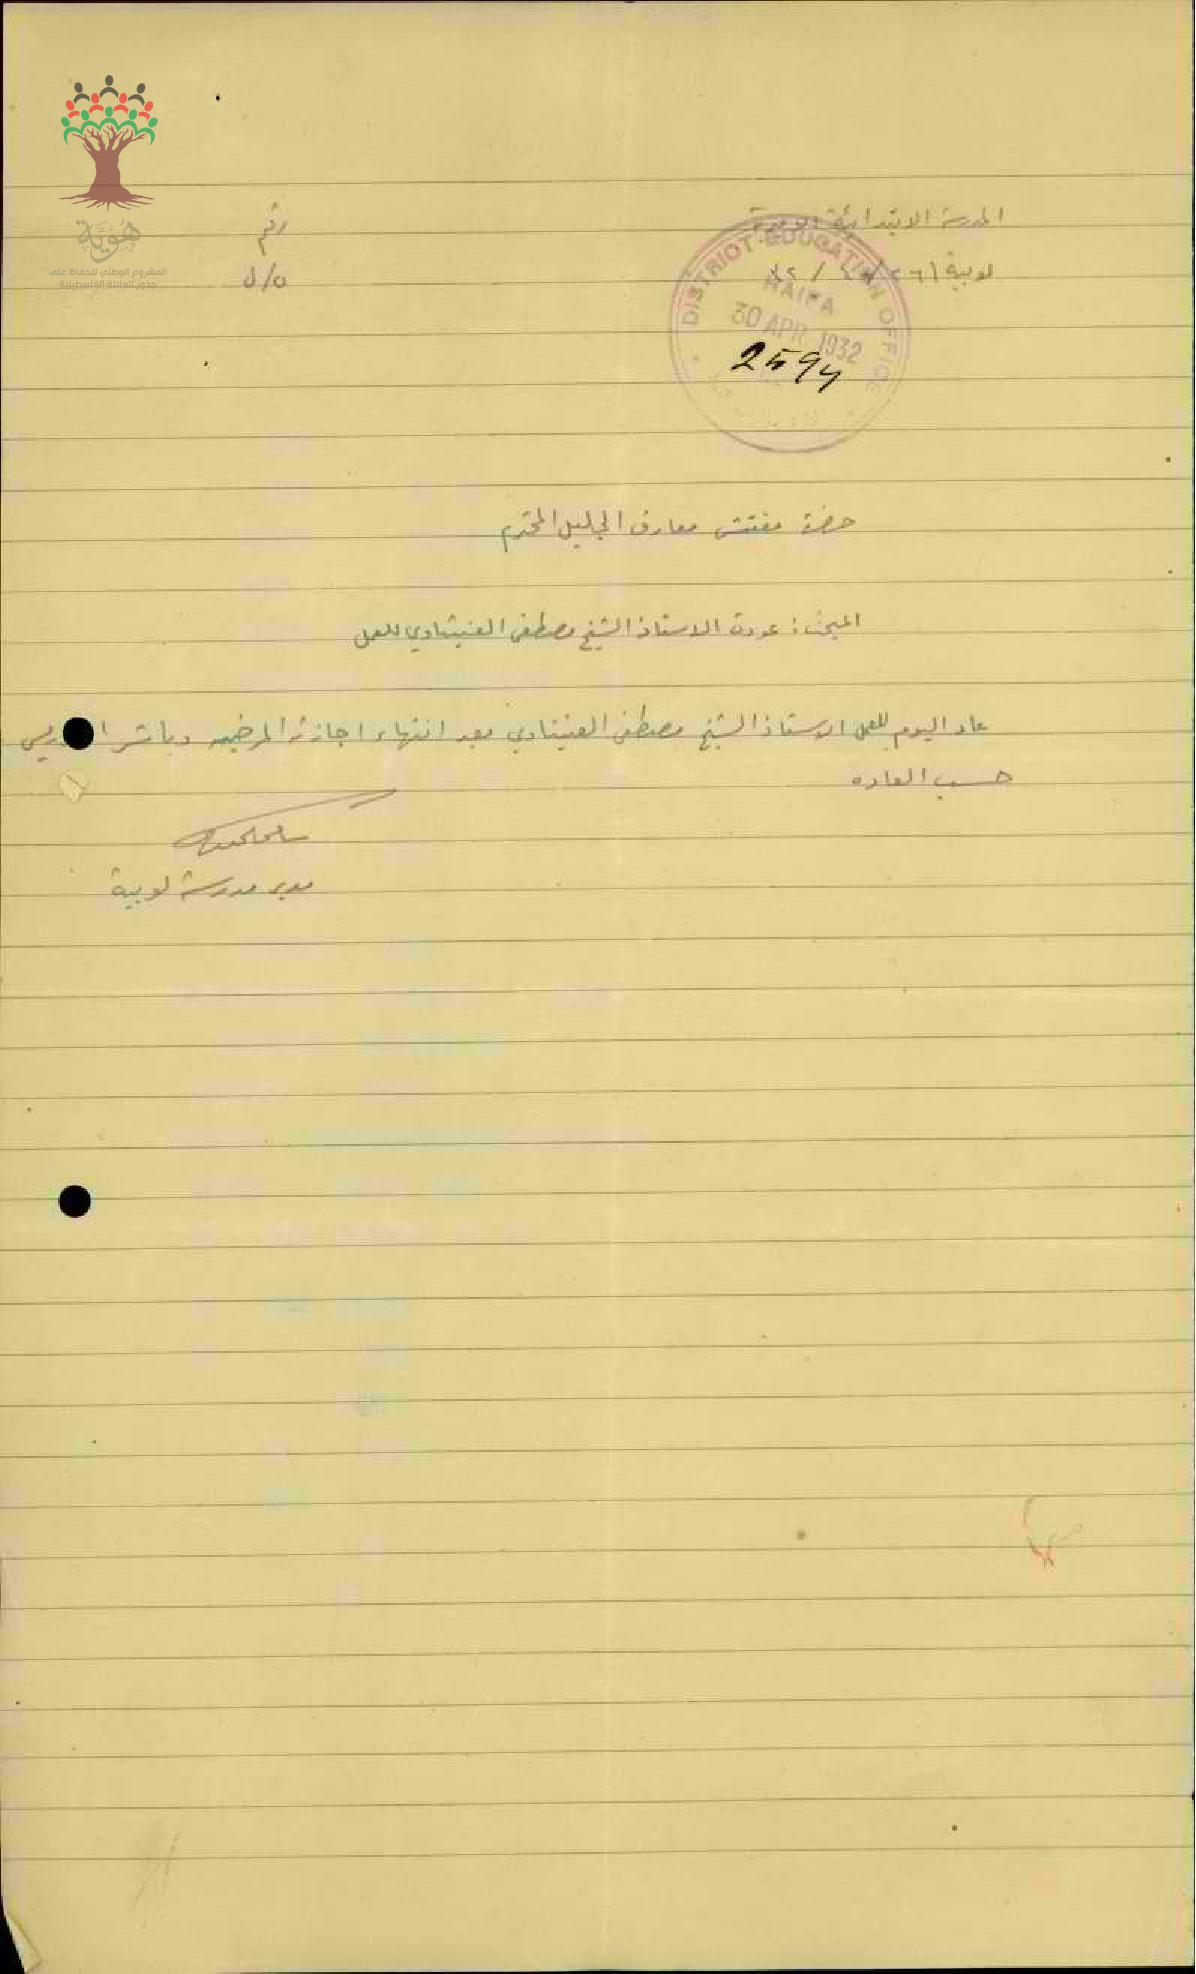 هُوِيَّة
المشروع الوطني للحفاظ على
جذور العائلة الفلسطينية
المدرسة الابتدائية الاميرية
رقم
لوبية
٥/٥
DISTRICT EDUCATION OFFICE
HAIFA
30 APR 1932
حضرة مفتش معارف الجليل المحترم
المبحث : عودة الاستاذ الشيخ مصطفى العنبتاوي للعمل
عاد اليوم للعمل الاستاذ الشيخ مصطفى العنبتاوي بعد انتهاء اجازته المرضيه وباشر
حسب العاده
مدير مدرسة لوبية